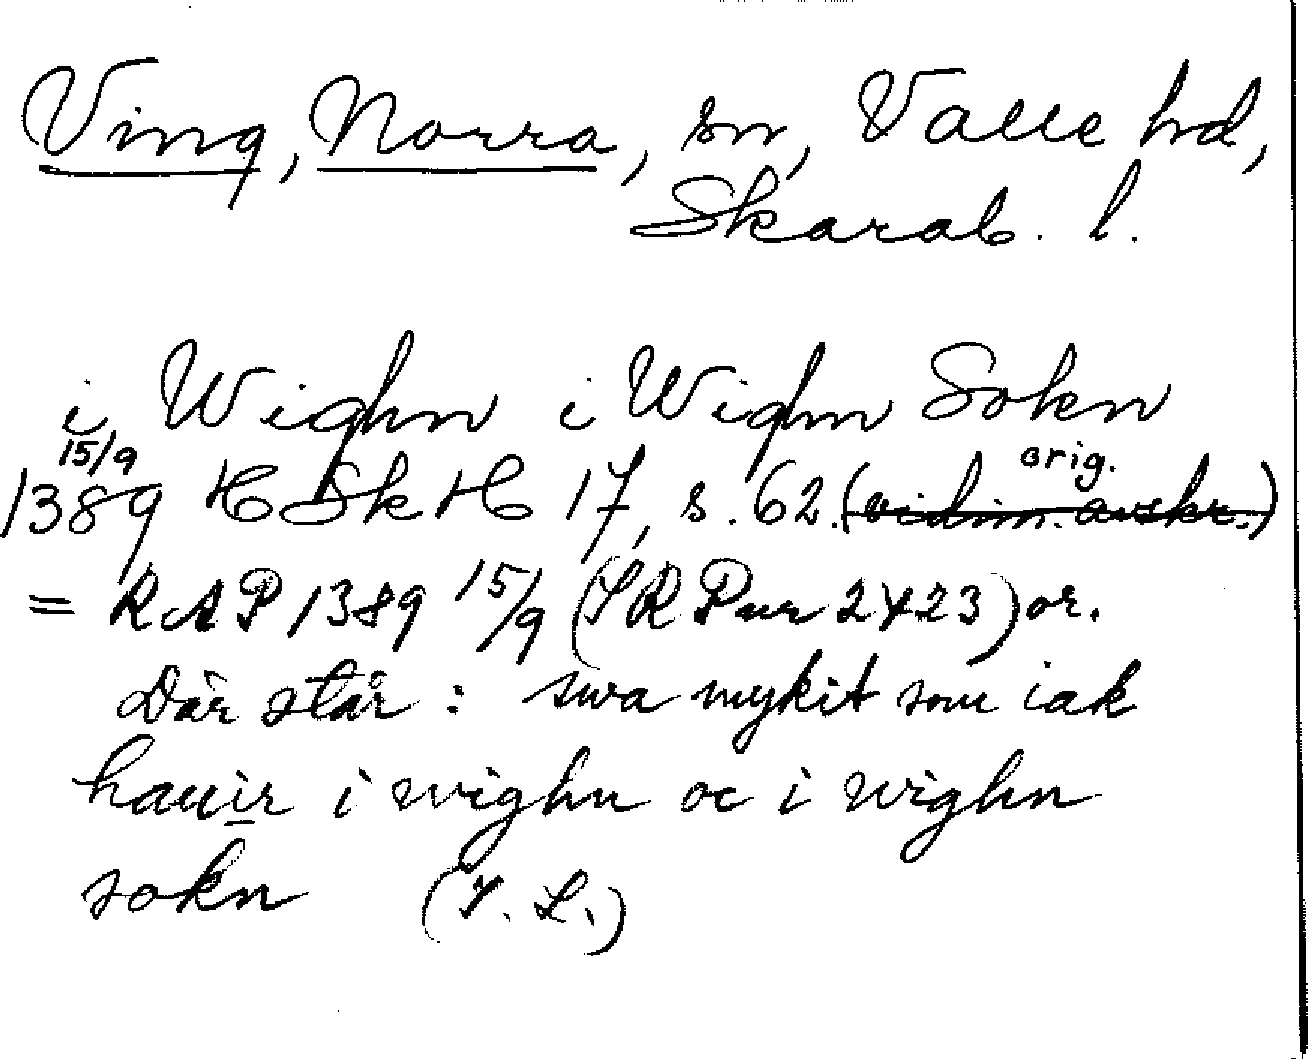 Ving, Norra, sn, Valle hd,
Skarab. l.
i Wighn i Wighn Sokn
15/9 orig.
1389 HSkH 17, s. 62. (vidim. avskr.)
= RAP 1389 15/9 (SRPur 2423) or.
Där står: swa mykit som iak
hauir i wighn oc i wighn
sokn (I. L.)